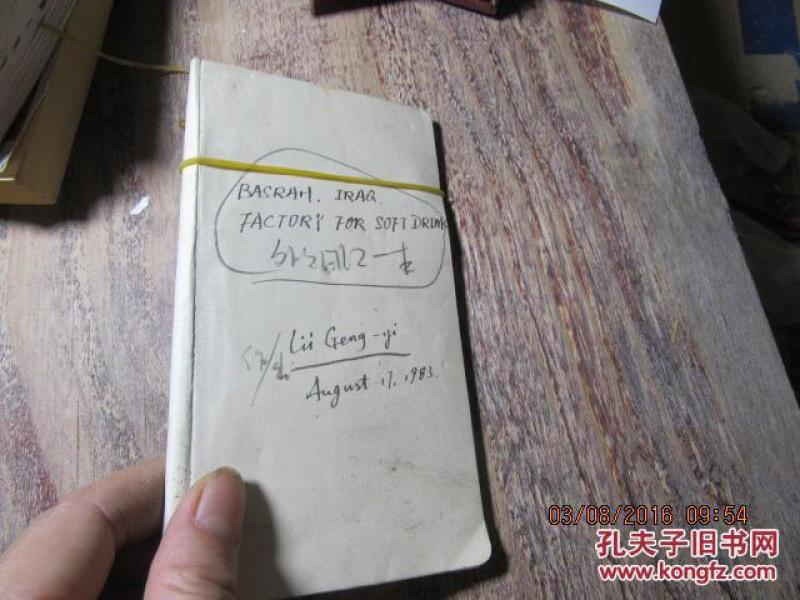 BASRAH. IRAQ.
FACTORY FOR SOFT DRINK
Lü Geng-yi
August 17, 1983.
03/08/2016 09:54
孔夫子旧书网
www.kongfz.com